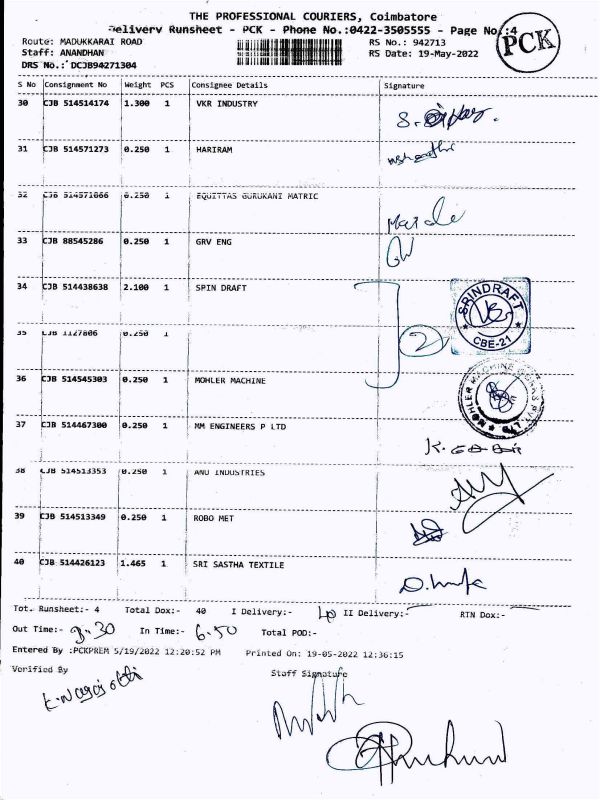 THE PROFESSIONAL COURIERS, Coimbatore
Delivery Runsheet - PCK - Phone No.:0422-3505555 - Page No.:4
PCK
Route: MADUKKARAI ROAD RS No.: 942713
Staff: ANANDHAN RS Date: 19-May-2022
DRS No.: DCJB94271304
S No Consignment No Weight PCS Consignee Details Signature
30 CJB 514514174 1.300 1 VKR INDUSTRY
31 CJB 514571273 0.250 1 HARIRAM
32 CJB 514571066 0.250 1 EQUITTAS GURUKANI MATRIC
33 CJB 88545286 0.250 1 GRV ENG
34 CJB 514438638 2.100 1 SPIN DRAFT
SPINDRAFT
CBE-21
2
35 CJB 1127806 0.250 1
36 CJB 514545303 0.250 1 MOHLER MACHINE
MOHLER MACHINE WORKS PVT. LTD.
37 CJB 514467300 0.250 1 MM ENGINEERS P LTD
38 CJB 514513353 0.250 1 ANU INDUSTRIES
39 CJB 514513349 0.250 1 ROBO MET
40 CJB 514426123 1.465 1 SRI SASTHA TEXTILE
Tot. Runsheet:- 4 Total Dox:- 40 I Delivery:- 40 II Delivery:- RTN Dox:-
Out Time:- 9.30 In Time:- 6.50 Total POD:-
Entered By :PCKPREM 5/19/2022 12:20:52 PM Printed On: 19-05-2022 12:36:15
Verified By Staff Signature